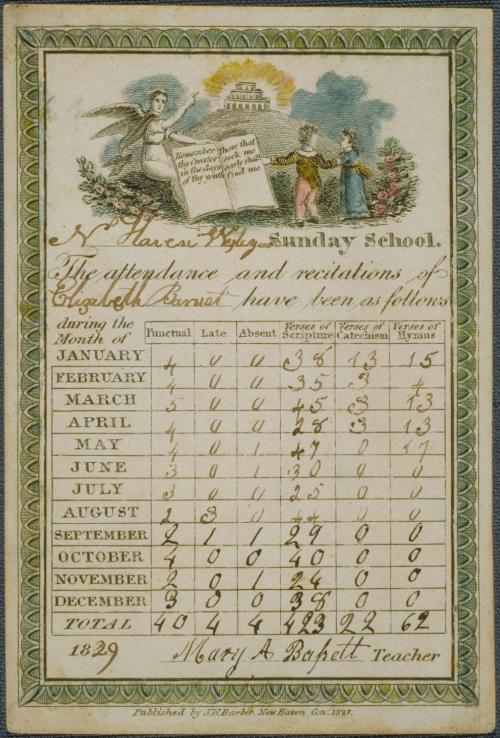 Remember
thy Creator
in the days
of thy youth
Those that
seek me
early shall
find me
Nº Haven Sunday School.
The attendance and recitations of
Elizabeth Barnet have been as follows
during the Month of Punctual Late Absent Verses of Scripture Verses of Catechism Verses of Hymns
JANUARY 4 0 0 38 13 15
FEBRUARY 4 0 0 35 3 4
MARCH 5 0 0 45 3 13
APRIL 4 0 0 28 3 13
MAY 4 0 1 47 0 17
JUNE 3 0 1 30 0 0
JULY 3 0 0 25 0 0
AUGUST 2 3 0 44 0 0
SEPTEMBER 2 1 1 29 0 0
OCTOBER 4 0 0 40 0 0
NOVEMBER 2 0 1 24 0 0
DECEMBER 3 0 0 38 0 0
TOTAL 40 4 4 423 22 62
1829 Mary A Baſsett Teacher
Published by J.W. Barber, New Haven Con. 1827.